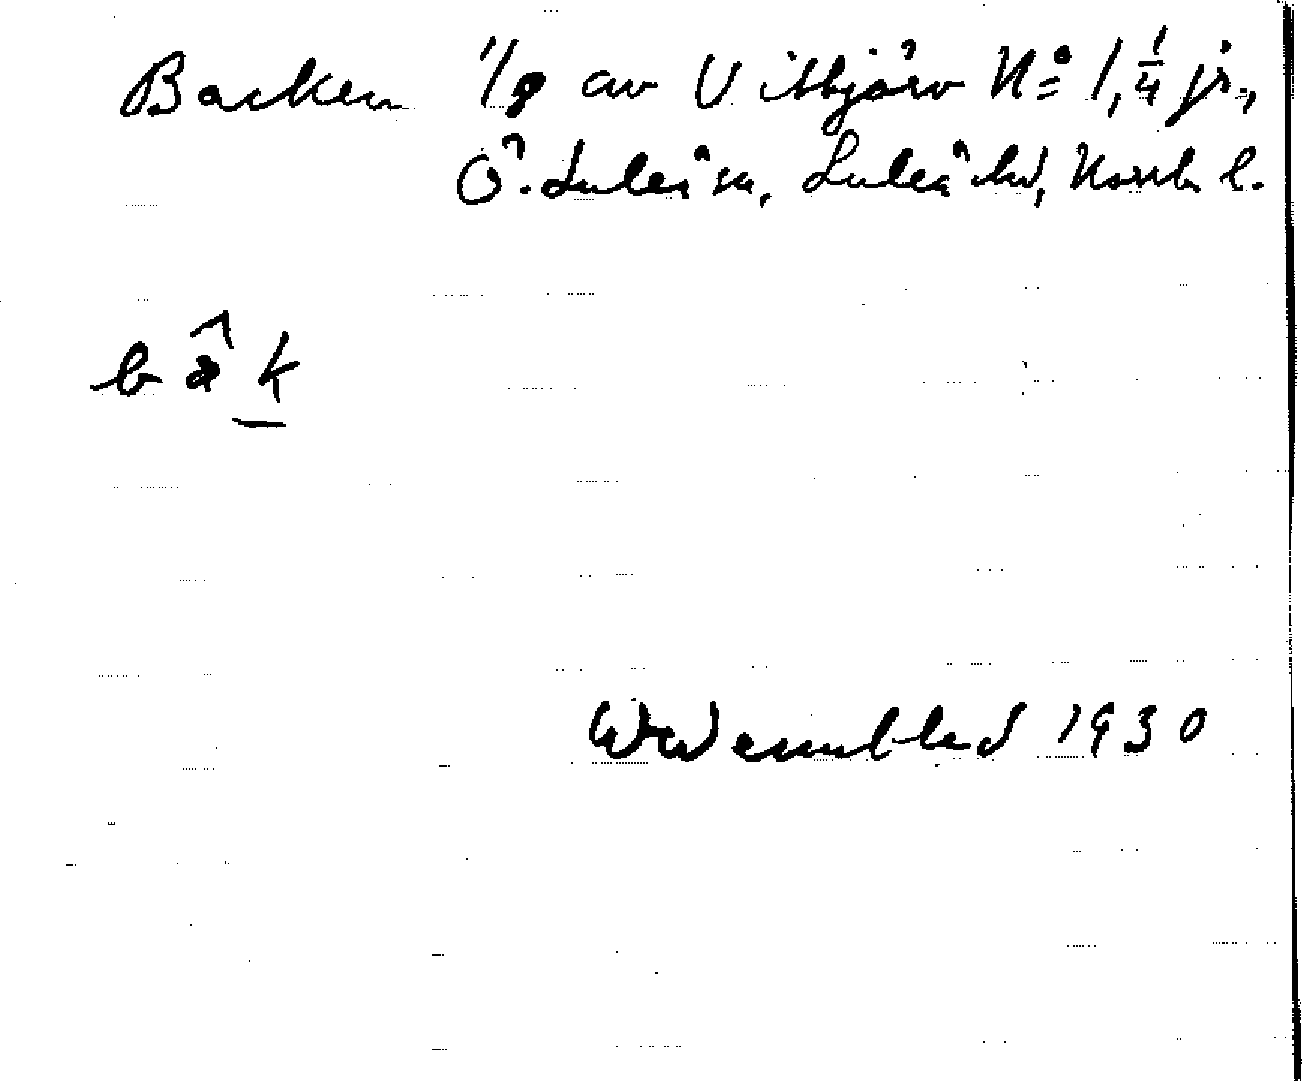 Backen 1/8 av Vitbjörv Nº 1, 1/4 jr.,
Ö. Luleå sn, Luleå tld, Norrb. l.
bâk
Wdemblad 1930